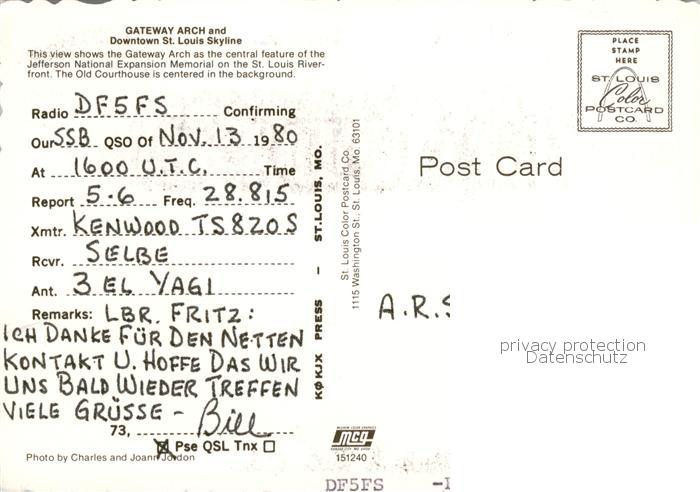 GATEWAY ARCH and
Downtown St. Louis Skyline
This view shows the Gateway Arch as the central feature of the
Jefferson National Expansion Memorial on the St. Louis River-
front. The Old Courthouse is centered in the background.
Radio DF5FS Confirming
Our SSB QSO of Nov. 13 1980
At 1600 U.T.C. Time
Report 5-6 Freq. 28.815
Xmtr. KENWOOD TS820S
Rcvr. SELBE
Ant. 3 EL YAGI
Remarks: LBR. FRITZ:
ICH DANKE FÜR DEN NETTEN
KONTAKT U. HOFFE DAS WIR
UNS BALD WIEDER TREFFEN
VIELE GRÜSSE - Bill
73,
Pse QSL Tnx
Photo by Charles and Joann Jordon
KØKJX PRESS - ST. LOUIS, MO.
St. Louis Color Postcard Co.
1115 Washington St., St. Louis, Mo. 63101
PLACE
STAMP
HERE
ST. LOUIS
Color
POSTCARD
CO.
Post Card
A.R.S
privacy protection
Datenschutz
mcg
151240
DF5FS -